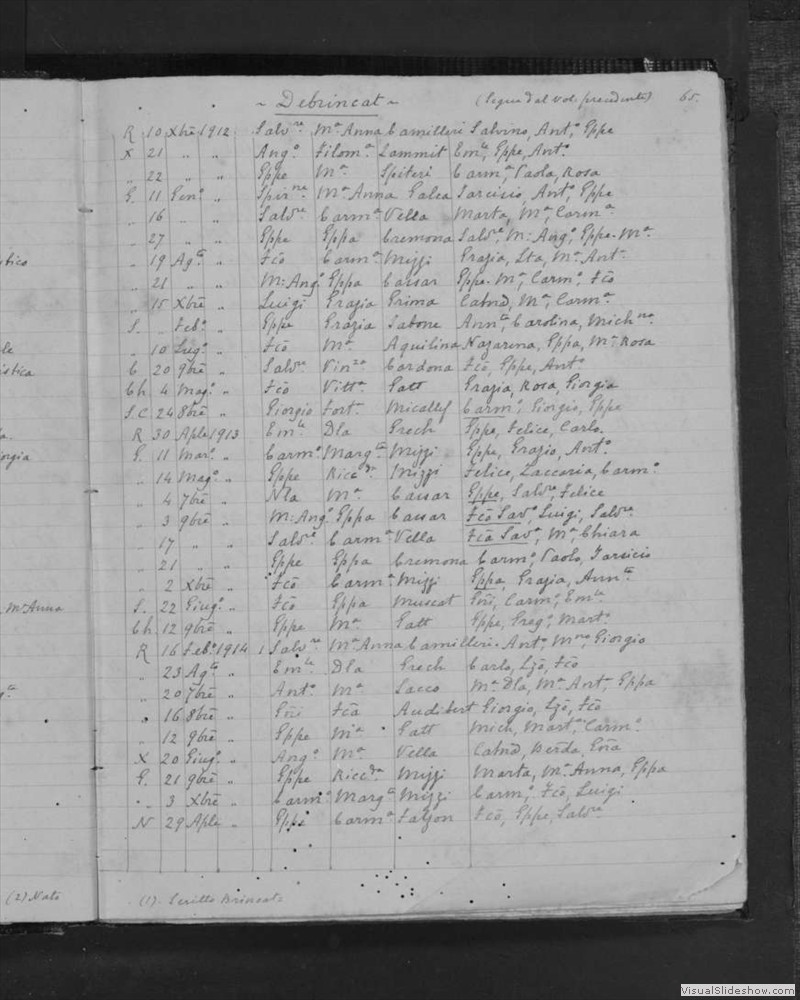 ~ Debrincat ~ (Segue dal vol. precedente) 65.
R 10 Xbre 1912 Salv.re Mª Anna Camilleri Salvino, Ant.o, Eppe
X 21 " " Ang.o Filom.a Sammit Em.le, Eppe, Ant.o
" 22 " " Eppe M.a Spiteri Carm.a, Paola, Rosa
G. 11 Gen.o " Spir.ne M.a Anna Galea Tarcisio, Ant.o, Eppe
" 16 " " Salv.re Carm.a Vella Marta, M.a Carm.a
" 27 " " Eppe Eppa Cremona Salv.e, M: Ang.o, Eppa-M.a
ptico " 19 Ag.to " Fcõ Carm.a Mizzi Grazia, Lta, M.a Ant.a
" 21 " " M: Ang.o Eppa Cassar Eppe-M.a, Carm.o, Fcõ
" 15 Xbre " Luigi Grazia Grima Catnã, M.a, Carm.a
S. " Feb.o " Eppe Grazia Satone Ann.ta, Carolina, Mich.na
le " 10 Lug.o " Fcõ M.a Aquilina Nazarena, Eppa, M.a Rosa
istica C 20 9bre " Salv.re Vin.za Cardona Fcõ, Eppe, Ant.o
Ch 4 Mag.o " Fcõ Vitt.a Gatt Grazia, Rosa, Giorgia
S.C 24 8bre " Giorgio Fort.a Micallef Carm.o, Giorgio, Eppe
a. R 30 Aple 1913 Em.le Dla Grech Eppe, Felice, Carlo
orgia G. 11 Mar.o " Carm.o Marg.ta Mizzi Eppe, Grazio, Ant.o
" 14 Mag.o " Eppe Ricc.da Mizzi Felice, Zaccaria, Carm.o
" 4 7bre " Nla M.a Cassar Eppe, Salv.re, Felice
" 3 9bre " M: Ang.o Eppa Cassar Fcõ Sav.o, Luigi, Salv.re
" 17 " " Salv.re Carm.a Vella Fcã Sav.a, M.a, Chiara
" 21 " " Eppe Eppa Cremona Carm.o, Paolo, Tarsicio
" 2 Xbre " Fcõ Carm.a Mizzi Eppa, Grazia, Ann.ta
M.a Anna S. 22 Giug.o " Fcõ Eppa Muscat Gñi, Carm.o, Em.le
Ch. 12 9bre " Eppe M.a Gatt Eppe, Greg.o, Mart.o
R 16 Feb.o 1914 Salv.re M.a Anna Camilleri Ant.o, M.no, Giorgio
" 23 Ag.to " Em.le Dla Grech Carlo, Lzõ, Fcõ
" 20 7bre " Ant.o M.a Sacco M.a Dla, M.a Ant.a, Eppa
" 16 8bre " Gñi Fcã Audibert Giorgio, Lzõ, Fcõ
" 12 9bre " Eppe M.a Gatt Mich, Mart.o, Carm.o
X 20 Giug.o " Ang.o M.a Vella Catnã, Gñã
G. 21 9bre " Eppe Ricc.da Mizzi Marta, M.a Anna, Eppa
" 3 Xbre " Carm.o Marg.ta Mizzi Carm.o, Fcõ, Luigi
N 29 Aple " Eppe Carm.a Falzon Fcõ, Eppe, Salv.re
(2) Nato (1) Scritto Brincat
VisualSlideshow.com